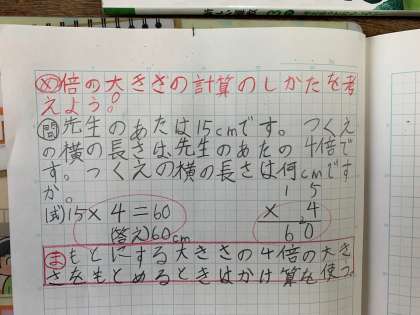 め 倍の大きさの計算のしかたを考
えよう!!
問 先生のあたは15cmです。つくえ
の横の長さは、先生のあたの4倍で
す。つくえの横の長さは何cmです
か。
(式)15×4=60
(答え)60cm
15
×4
2
60
ま もとにする大きさの4倍の大き
さをもとめるときはかけ算を使う。